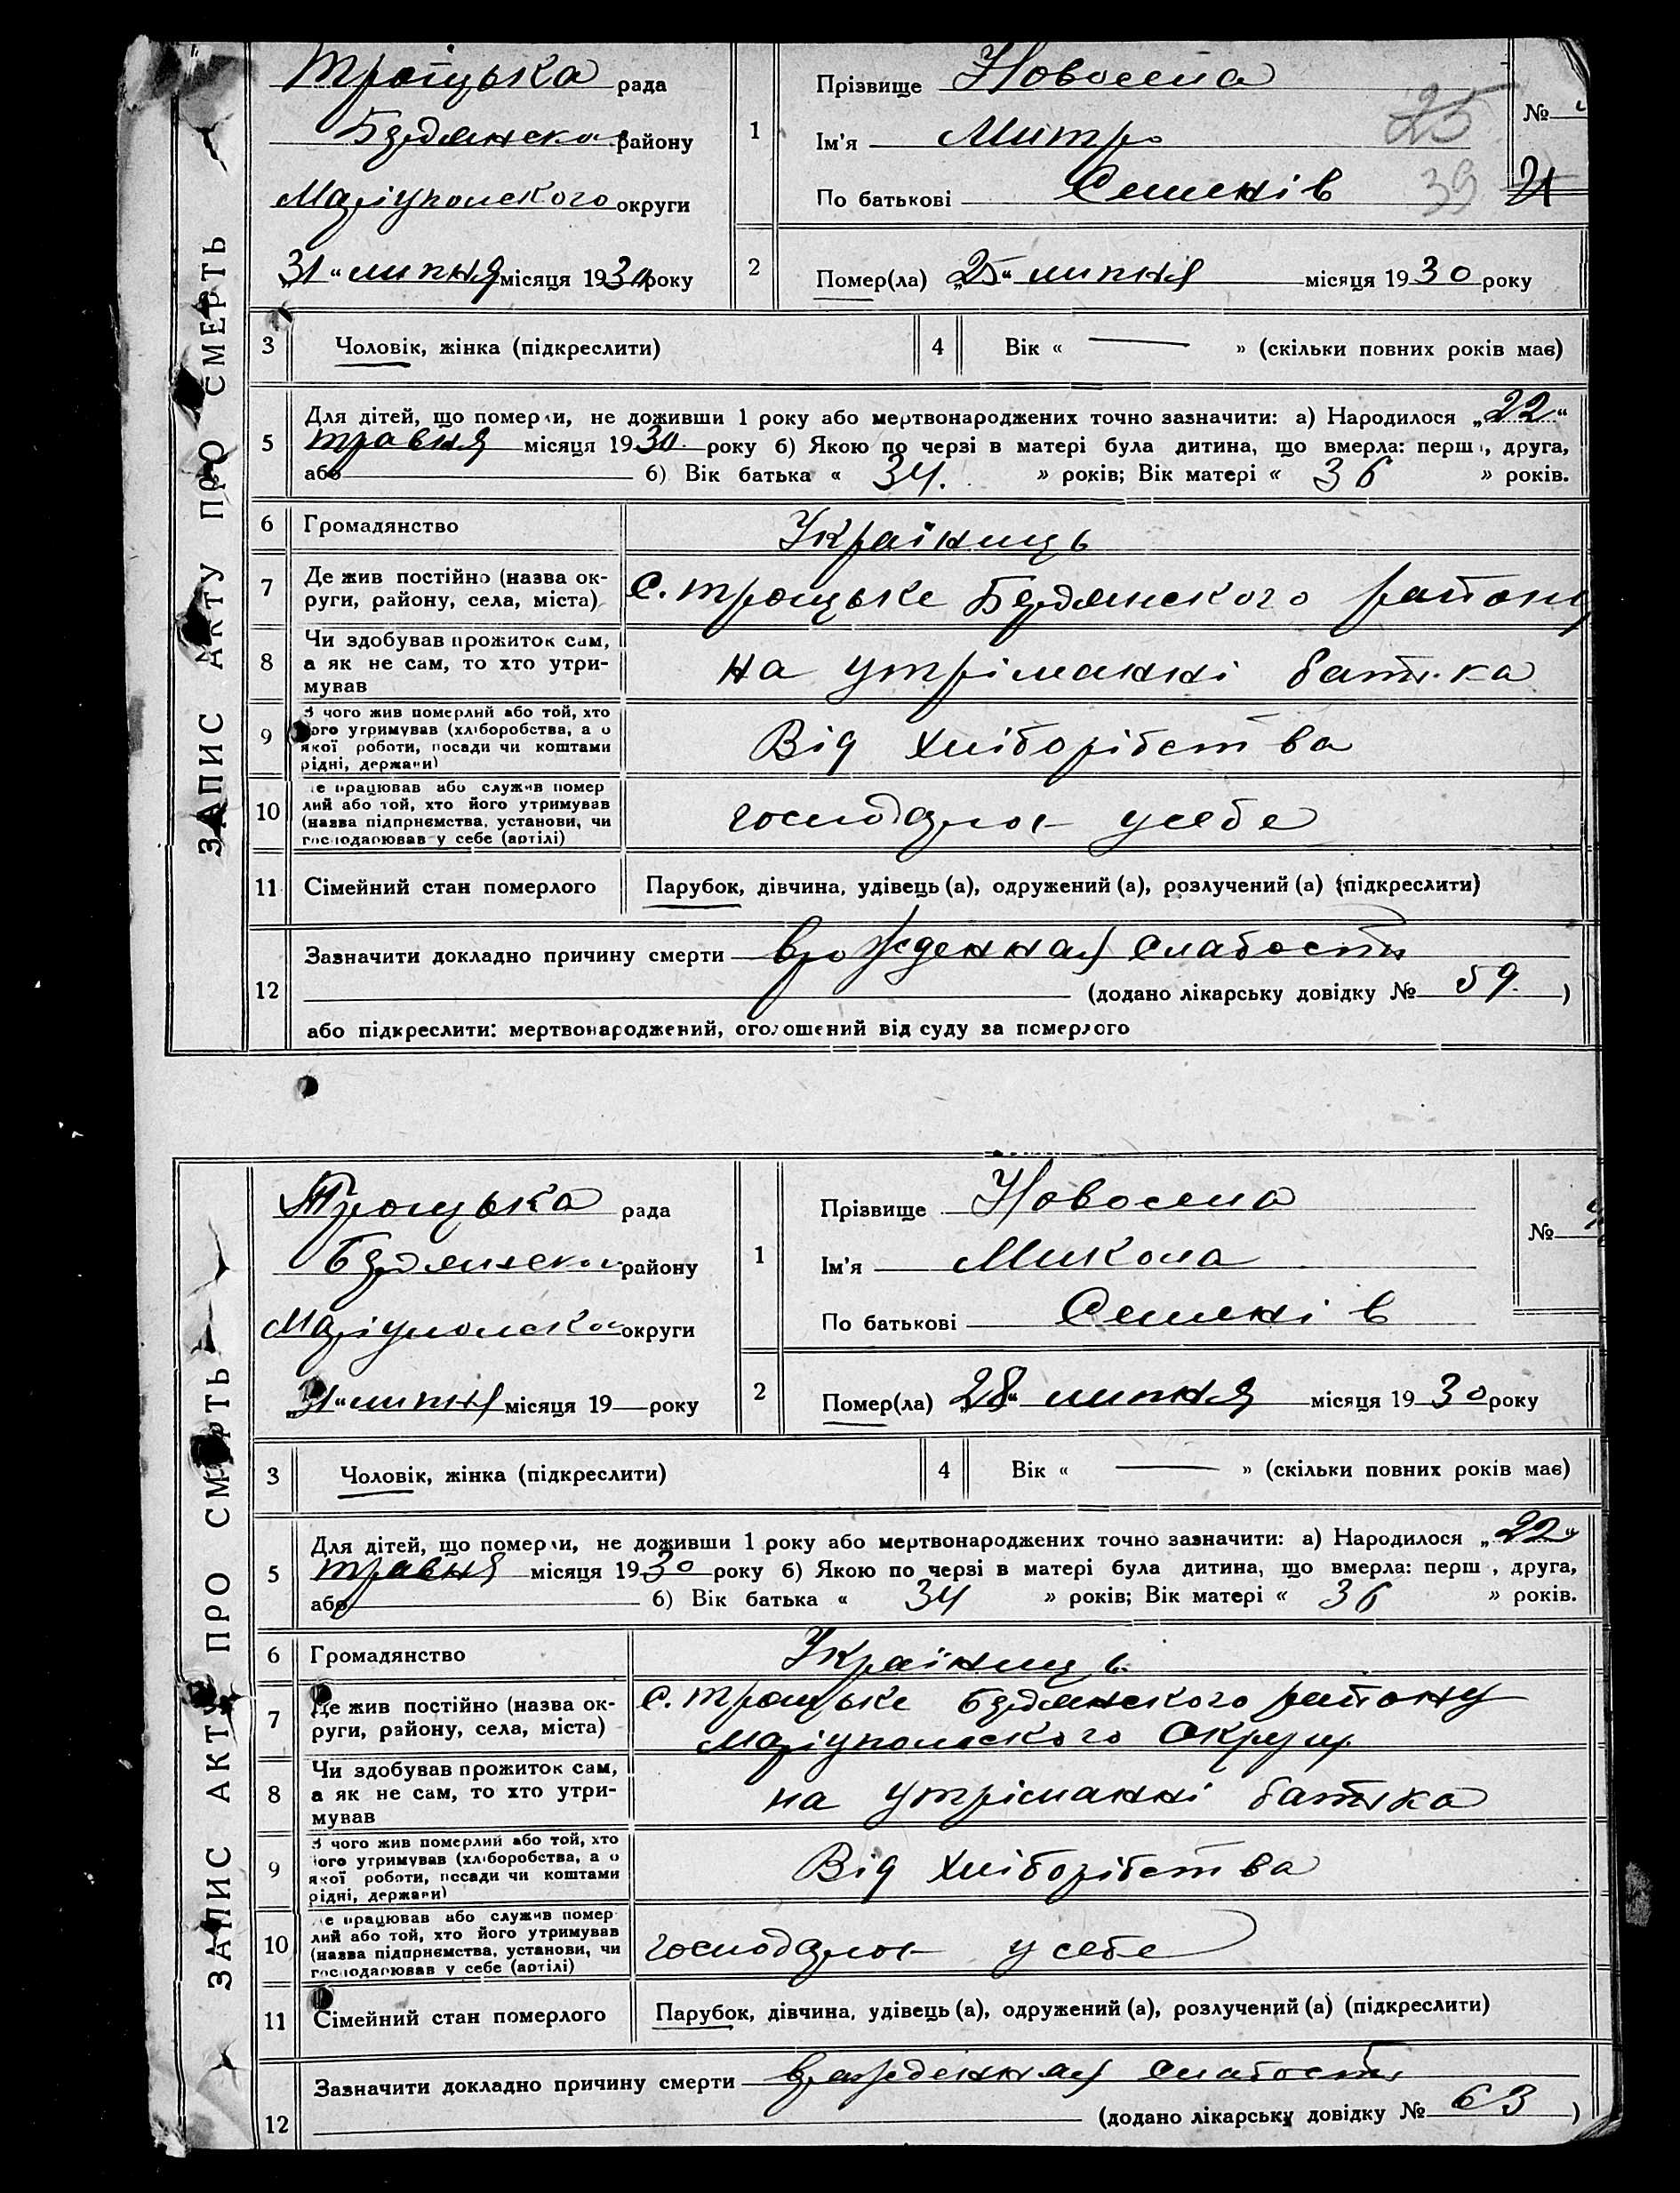 ЗАПИС АКТУ ПРО СМЕРТЬ
Троїцька рада
Бердянского району
Маріупольского округи
„31“ липня місяця 1930 року
1
Прізвище Новосела
Ім'я Митро
По батькові Семенів
25
39
№
21
2
Помер(ла) „25“ липня місяця 1930 року
3 Чоловік, жінка (підкреслити)
4 Вік « — » (скільки повних років має)
5
Для дітей, що померли, не доживши 1 року або мертвонароджених точно зазначити: а) Народилося „22“
травня місяця 1930 року б) Якою по черзі в матері була дитина, що вмерла: перш , друга,
або б) Вік батька « 34. » років; Вік матері « 36 » років.
6 Громадянство Українць
7 Де жив постійно (назва ок-
руги, району, села, міста)
с. троцьке Бердянского району
8 Чи здобував прожиток сам,
а як не сам, то хто утри-
мував
на утріманні батька
9 З чого жив померлий або той, хто
його утримував (хліборобства, а о
якої роботи, посади чи коштами
рідні, держави)
Від хліборібства
10 Де працював або служив помер
лий або той, хто його утримував
(назва підприємства, установи, чи
господарював у себе (артілі)
господарює усебе
11 Сімейний стан померлого Парубок, дівчина, удівець (а), одружений (а), розлучений (а) (підкреслити)
12
Зазначити докладно причину смерти врожденная слабость
(додано лікарську довідку № 59. )
або підкреслити: мертвонароджений, оголошений від суду за померлого
ЗАПИС АКТУ ПРО СМЕРТЬ
Троцька рада
Бердянского району
Маріупольского округи
„31“ липня місяця 19— року
1
Прізвище Новосела
Ім'я Микола
По батькові Семенів
№
2
Помер(ла) „28“ липня місяця 1930 року
3 Чоловік, жінка (підкреслити)
4 Вік « — » (скільки повних років має)
5
Для дітей, що померли, не доживши 1 року або мертвонароджених точно зазначити: а) Народилося „22“
травня місяця 1930 року б) Якою по черзі в матері була дитина, що вмерла: перш , друга,
або б) Вік батька « 34 » років; Вік матері « 36 » років.
6 Громадянство Українць
7 Де жив постійно (назва ок-
руги, району, села, міста)
с. троцьке Бердянского району
Маріупольского Округи
8 Чи здобував прожиток сам,
а як не сам, то хто утри-
мував
на утріманні батька
9 З чого жив померлий або той, хто
його утримував (хліборобства, а о
якої роботи, посади чи коштами
рідні, держави)
Від хліборібства
10 Де працював або служив помер
лий або той, хто його утримував
(назва підприємства, установи, чи
господарював у себе (артілі)
господарює у себе
11 Сімейний стан померлого Парубок, дівчина, удівець (а), одружений (а), розлучений (а) (підкреслити)
12
Зазначити докладно причину смерти врожденная слабость
(додано лікарську довідку № 63 )